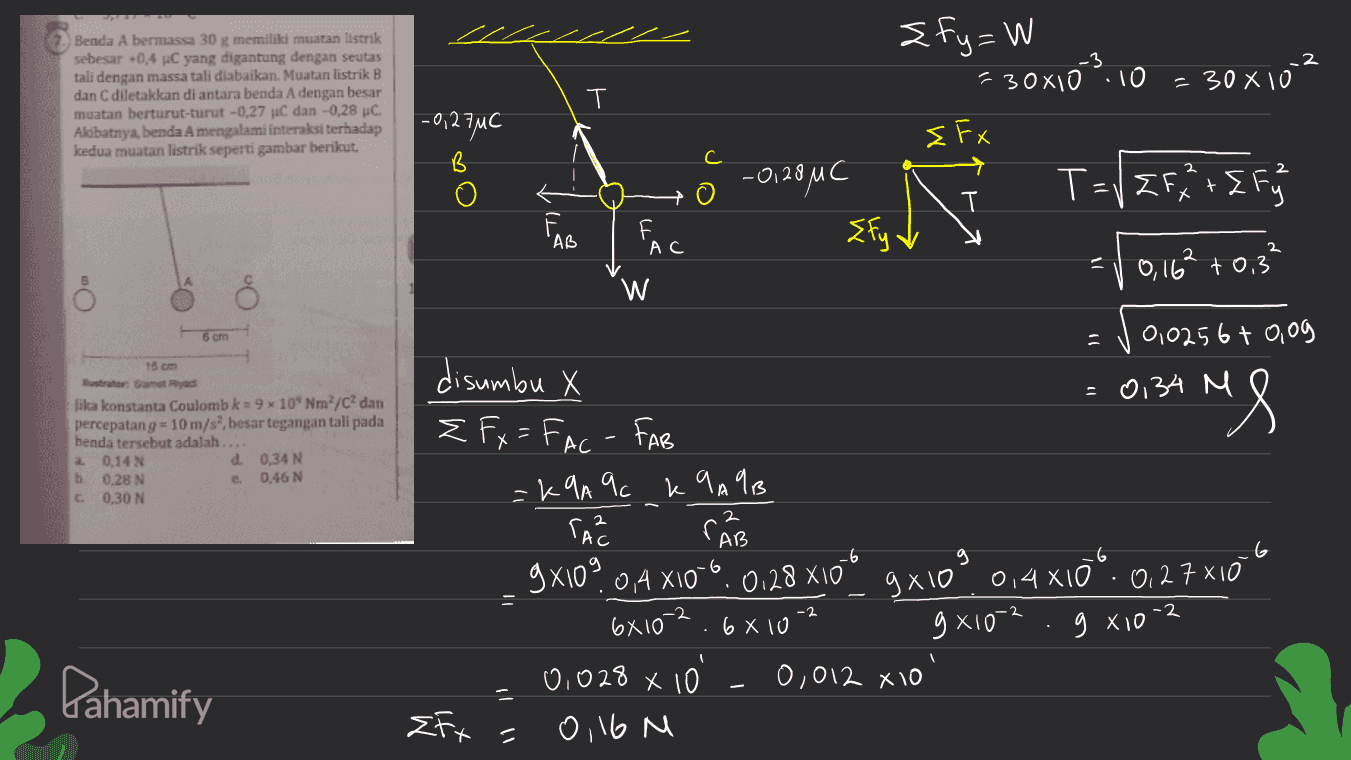 7. Benda A bermassa 30 g memiliki muatan listrik
sebesar +0,4 µC yang digantung dengan seutas
tali dengan massa tali diabaikan. Muatan listrik B
dan C diletakkan di antara benda A dengan besar
muatan berturut-turut -0,27 µC dan -0,28 µC.
Akibatnya, benda A mengalami interaksi terhadap
kedua muatan listrik seperti gambar berikut.
B A C
6 cm
15 cm
Ilustrator: Slamet Riyadi
Jika konstanta Coulomb k = 9 × 10⁹ Nm²/C² dan
percepatan g = 10 m/s², besar tegangan tali pada
benda tersebut adalah ....
a. 0,14 N d. 0,34 N
b. 0,28 N e. 0,46 N
c. 0,30 N
T
-0,27µC
B
C
-0,28 µC
F_AB
F_AC
W
ΣFx
T
ΣFy
ΣFy = W
= 30×10⁻³ . 10 = 30 × 10⁻²
T = √ΣFx² + ΣFy²
= √0,16² + 0,3²
= √0,0256 + 0,09
= 0,34 N
disumbu X
ΣFx = F_AC - F_AB
= k q_A q_C / r_AC² - k q_A q_B / r_AB²
= 9×10⁹ . 0,4 ×10⁻⁶ . 0,28 ×10⁻⁶ / 6×10⁻² . 6 × 10⁻² - 9×10⁹ . 0,4 ×10⁻⁶ . 0,27 ×10⁻⁶ / 9 ×10⁻² . 9 ×10⁻²
= 0,028 × 10¹ - 0,012 ×10¹
ΣFx = 0,16 N
Pahamify